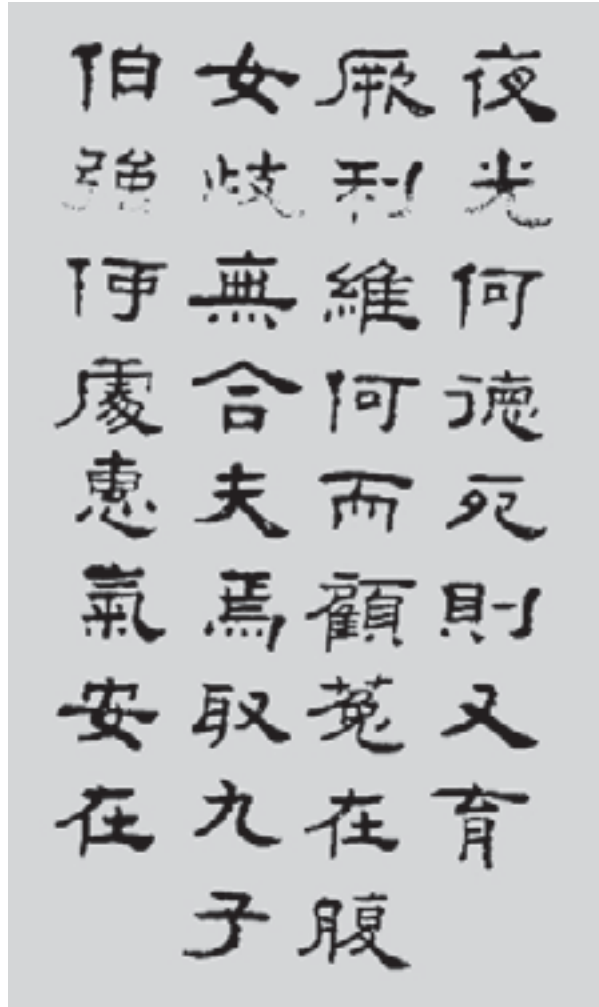 夜光何德死則又育
厥利維何而顧菟在腹
女歧無合夫焉取九子
伯強何處惠氣安在